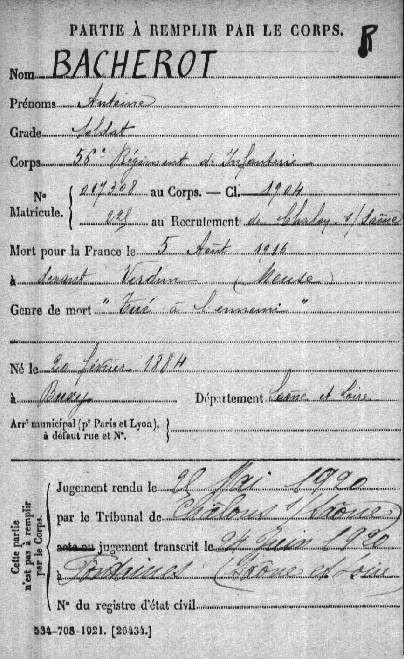 PARTIE À REMPLIR PAR LE CORPS.
R
Nom BACHEROT
Prénoms Antoine
Grade Soldat
Corps 56e Régiment d'Infanterie
No Matricule. 017208 au Corps. — Cl. 1904
228 au Recrutement de Chalon s/Saône
Mort pour la France le 5 Août 1916
à devant Verdun (Meuse)
Genre de mort "Tué à l'ennemi"
Né le 20 février 1884
à Buxy Département Saône et Loire
Arrt municipal (pr Paris et Lyon), à défaut rue et No.
Cette partie n'est pas à remplir par le Corps.
Jugement rendu le 28 Mai 1920
par le Tribunal de Chalons s/Saône
acte ou jugement transcrit le 24 Juin 1920
à (Saône et Loire
No du registre d'état civil
534-708-1921. [26434.]